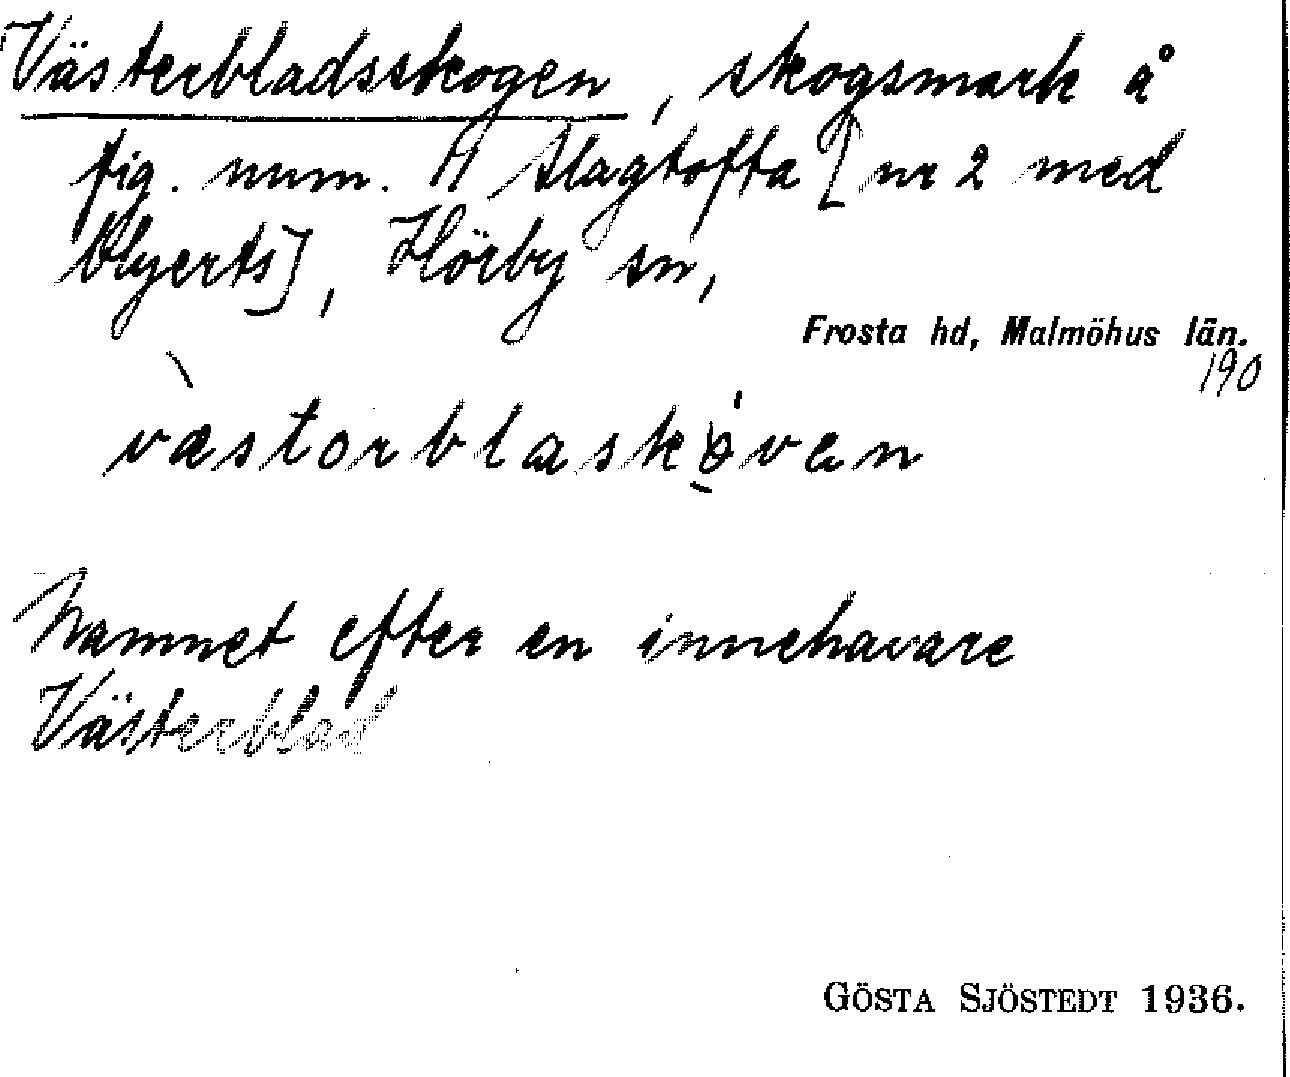 Västerbladsskogen, skogsmark å
fig. num. A Slagtofta [nr 2 med
blyerts], Hörby sn,
Frosta hd, Malmöhus län.
190
væstorblaskoven
Namnet efter en innehavare
Västerblad
GÖSTA SJÖSTEDT 1936.